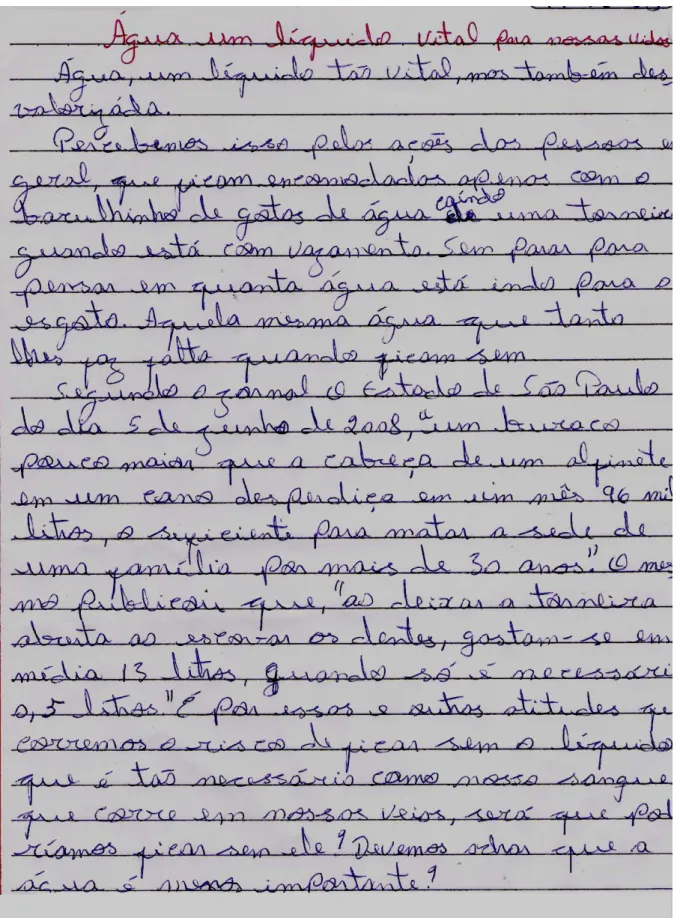 Água um líquido vital para nossas vidas
Água, um líquido tão vital, mas também des
valorizáda.
Percebemos isso pelas ações das pessoas e
geral, que ficam encomodados apenas com o
barulhinho de gotas de água caindo de uma torneir
quando está com vazamento. Sem parar para
pensar em quanta água está indo para o
esgoto. Aquela mesma água que tanto
lhes faz falta quando ficam sem
Segundo o jornal O Estado de São Paulo
do dia 5 de junho de 2008, "um buraco
pouco maior que a cabeça de um alfinete
em um cano desperdiça em um mês 96 mil
litros, o suficiente para matar a sede de
uma família por mais de 30 anos". O mes
mo publicou que, "ao deixar a torneira
aberta ao escovar os dentes, gastam-se em
média 13 litros, quando só é necessári
0,5 litros." É por essas e outras atitudes qu
corremos o risco de ficar sem o líquido
que é tão necessário como nosso sangue
que corre em nossas veias, será que pod
ríamos ficar sem ele? Devemos achar que a
água é menos importante?